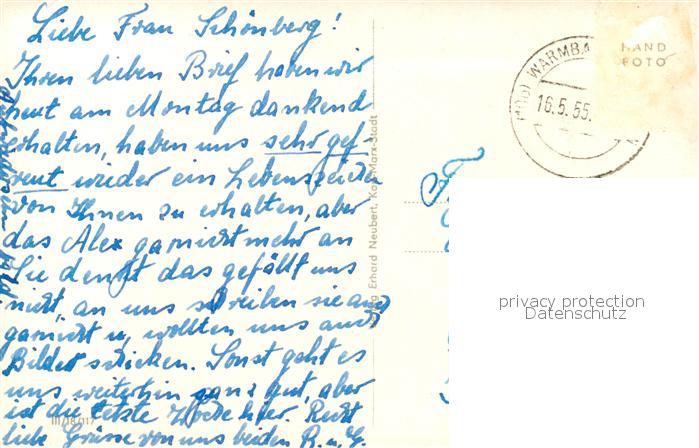 Liebe Frau Schönberg!
Ihren lieben Brief haben wir
heut am Montag dankend
erhalten, haben uns sehr gef-
reut wieder ein Lebenszeichen
von Ihnen zu erhalten, aber
das Alex garnicht mehr an
Sie denkt das gefällt uns
nicht, an uns schreiben sie auch
garnicht u. wollten uns auch
Bilder schicken. Sonst geht es
uns weiterhin ganz gut, aber
ist die letzte Woche hier. Recht
liebe Grüsse von uns beiden R. u. G.
III/18/017
Erhard Neubert, Karl-Marx-Stadt
WARMBA
16.5.55.
HAND
FOTO
privacy protection
Datenschutz